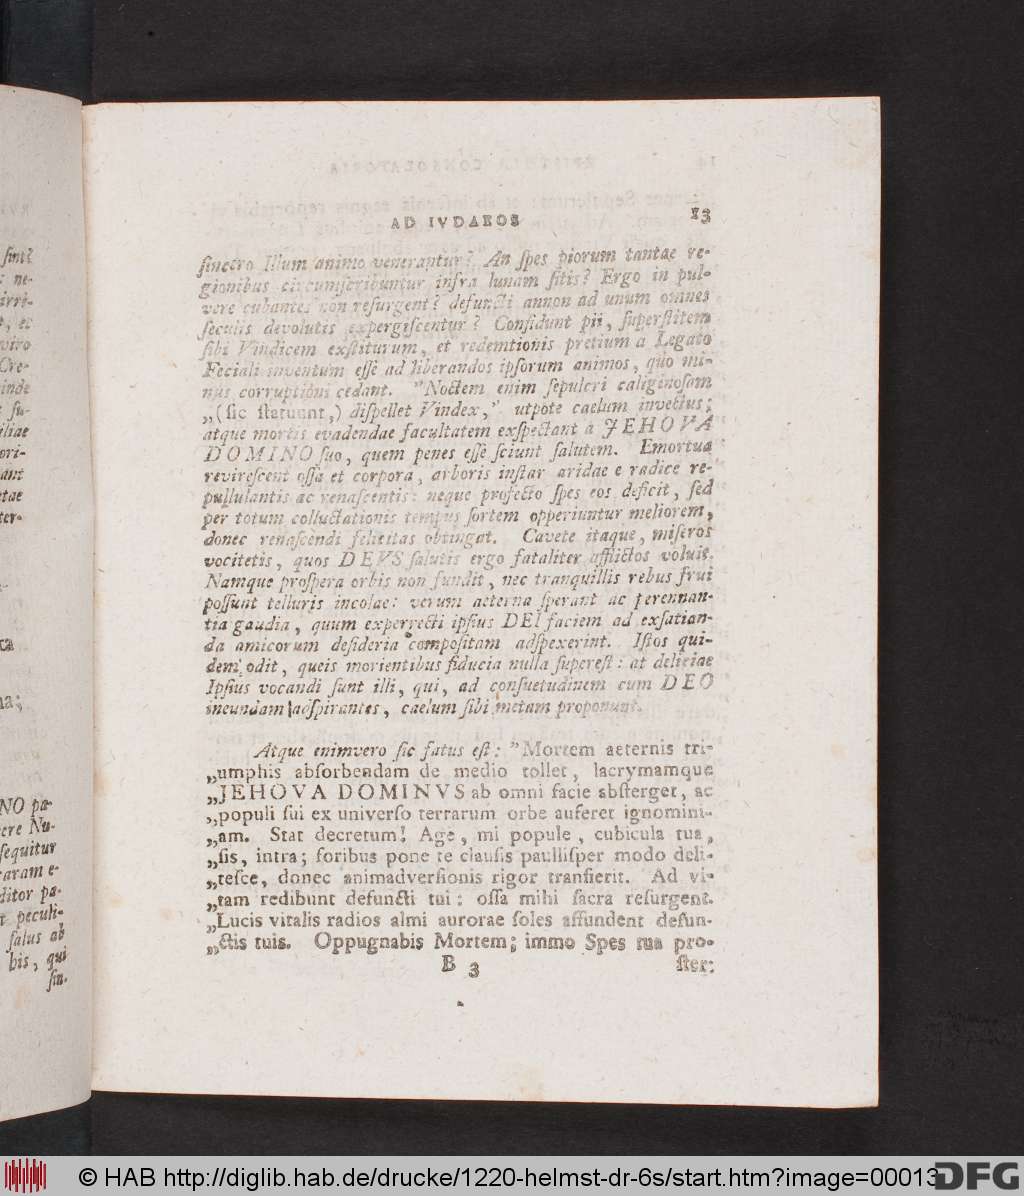 sint?
ne-
irri-
t, et
viro
Cre-
inde
su-
iliae
ori-
ant
tae
ter-
ta
na;
NO pa-
cre Nu-
sequitur
raram e-
ditor pa-
t peculi-
salus ab
bis, qui
sin-
AD IVDAEOS
13
sincero Illum animo venerantur? An spes piorum tantae re-
gionibus circumscribuntur infra lunam sitis? Ergo in pul-
vere cubantes non resurgent? defuncti annon ad unum omnes
seculis devolutis expergiscentur? Confidunt pii, superstitem
sibi Vindicem exstiturum, et redemtionis pretium a Legato
Feciali inventum esse ad liberandos ipsorum animos, quo mi-
nus corruptioni cedant. "Noctem enim sepulcri caliginosam
„(sic statuunt,) dispellet Vindex,” utpote caelum invectus;
atque mortis evadendae facultatem exspectant à JEHOVA
DOMINO suo, quem penes esse sciunt salutem. Emortua
revirescent ossa et corpora, arboris instar aridae e radice re-
pullulantis ac renascentis: neque profecto spes eos deficit, sed
per totum colluctationis tempus sortem opperiuntur meliorem,
donec renascendi felicitas obtingat. Cavete itaque, miseros
vocitetis, quos DEVS salutis ergo fataliter afflictos voluit.
Namque prospera orbis non fundit, nec tranquillis rebus frui
possunt telluris incolae: verum aeterna sperant ac perennan-
tia gaudia, quum experrecti ipsius DEI faciem ad exsatian-
da amicorum desideria compositam adspexerint. Istos qui-
dem odit, queis morientibus fiducia nulla superest: at deliciae
Ipsius vocandi sunt illi, qui, ad consuetudinem cum DEO
ineundam adspirantes, caelum sibi metam proponunt.
Atque enimvero sic fatus est: "Mortem aeternis tri-
„umphis absorbendam de medio tollet, lacrymamque
„JEHOVA DOMINVS ab omni facie absterget, ac
„populi sui ex universo terrarum orbe auferet ignomini-
„am. Stat decretum! Age, mi popule, cubicula tua,
„sis, intra; foribus pone te clausis paullisper modo deli-
„tesce, donec animadversionis rigor transierit. Ad vi-
„tam redibunt defuncti tui: ossa mihi sacra resurgent.
„Lucis vitalis radios almi aurorae soles affundent defun-
„ctis tuis. Oppugnabis Mortem; immo Spes tua pro-
B 3
ster:
© HAB http://diglib.hab.de/drucke/1220-helmst-dr-6s/start.htm?image=00013
DFG